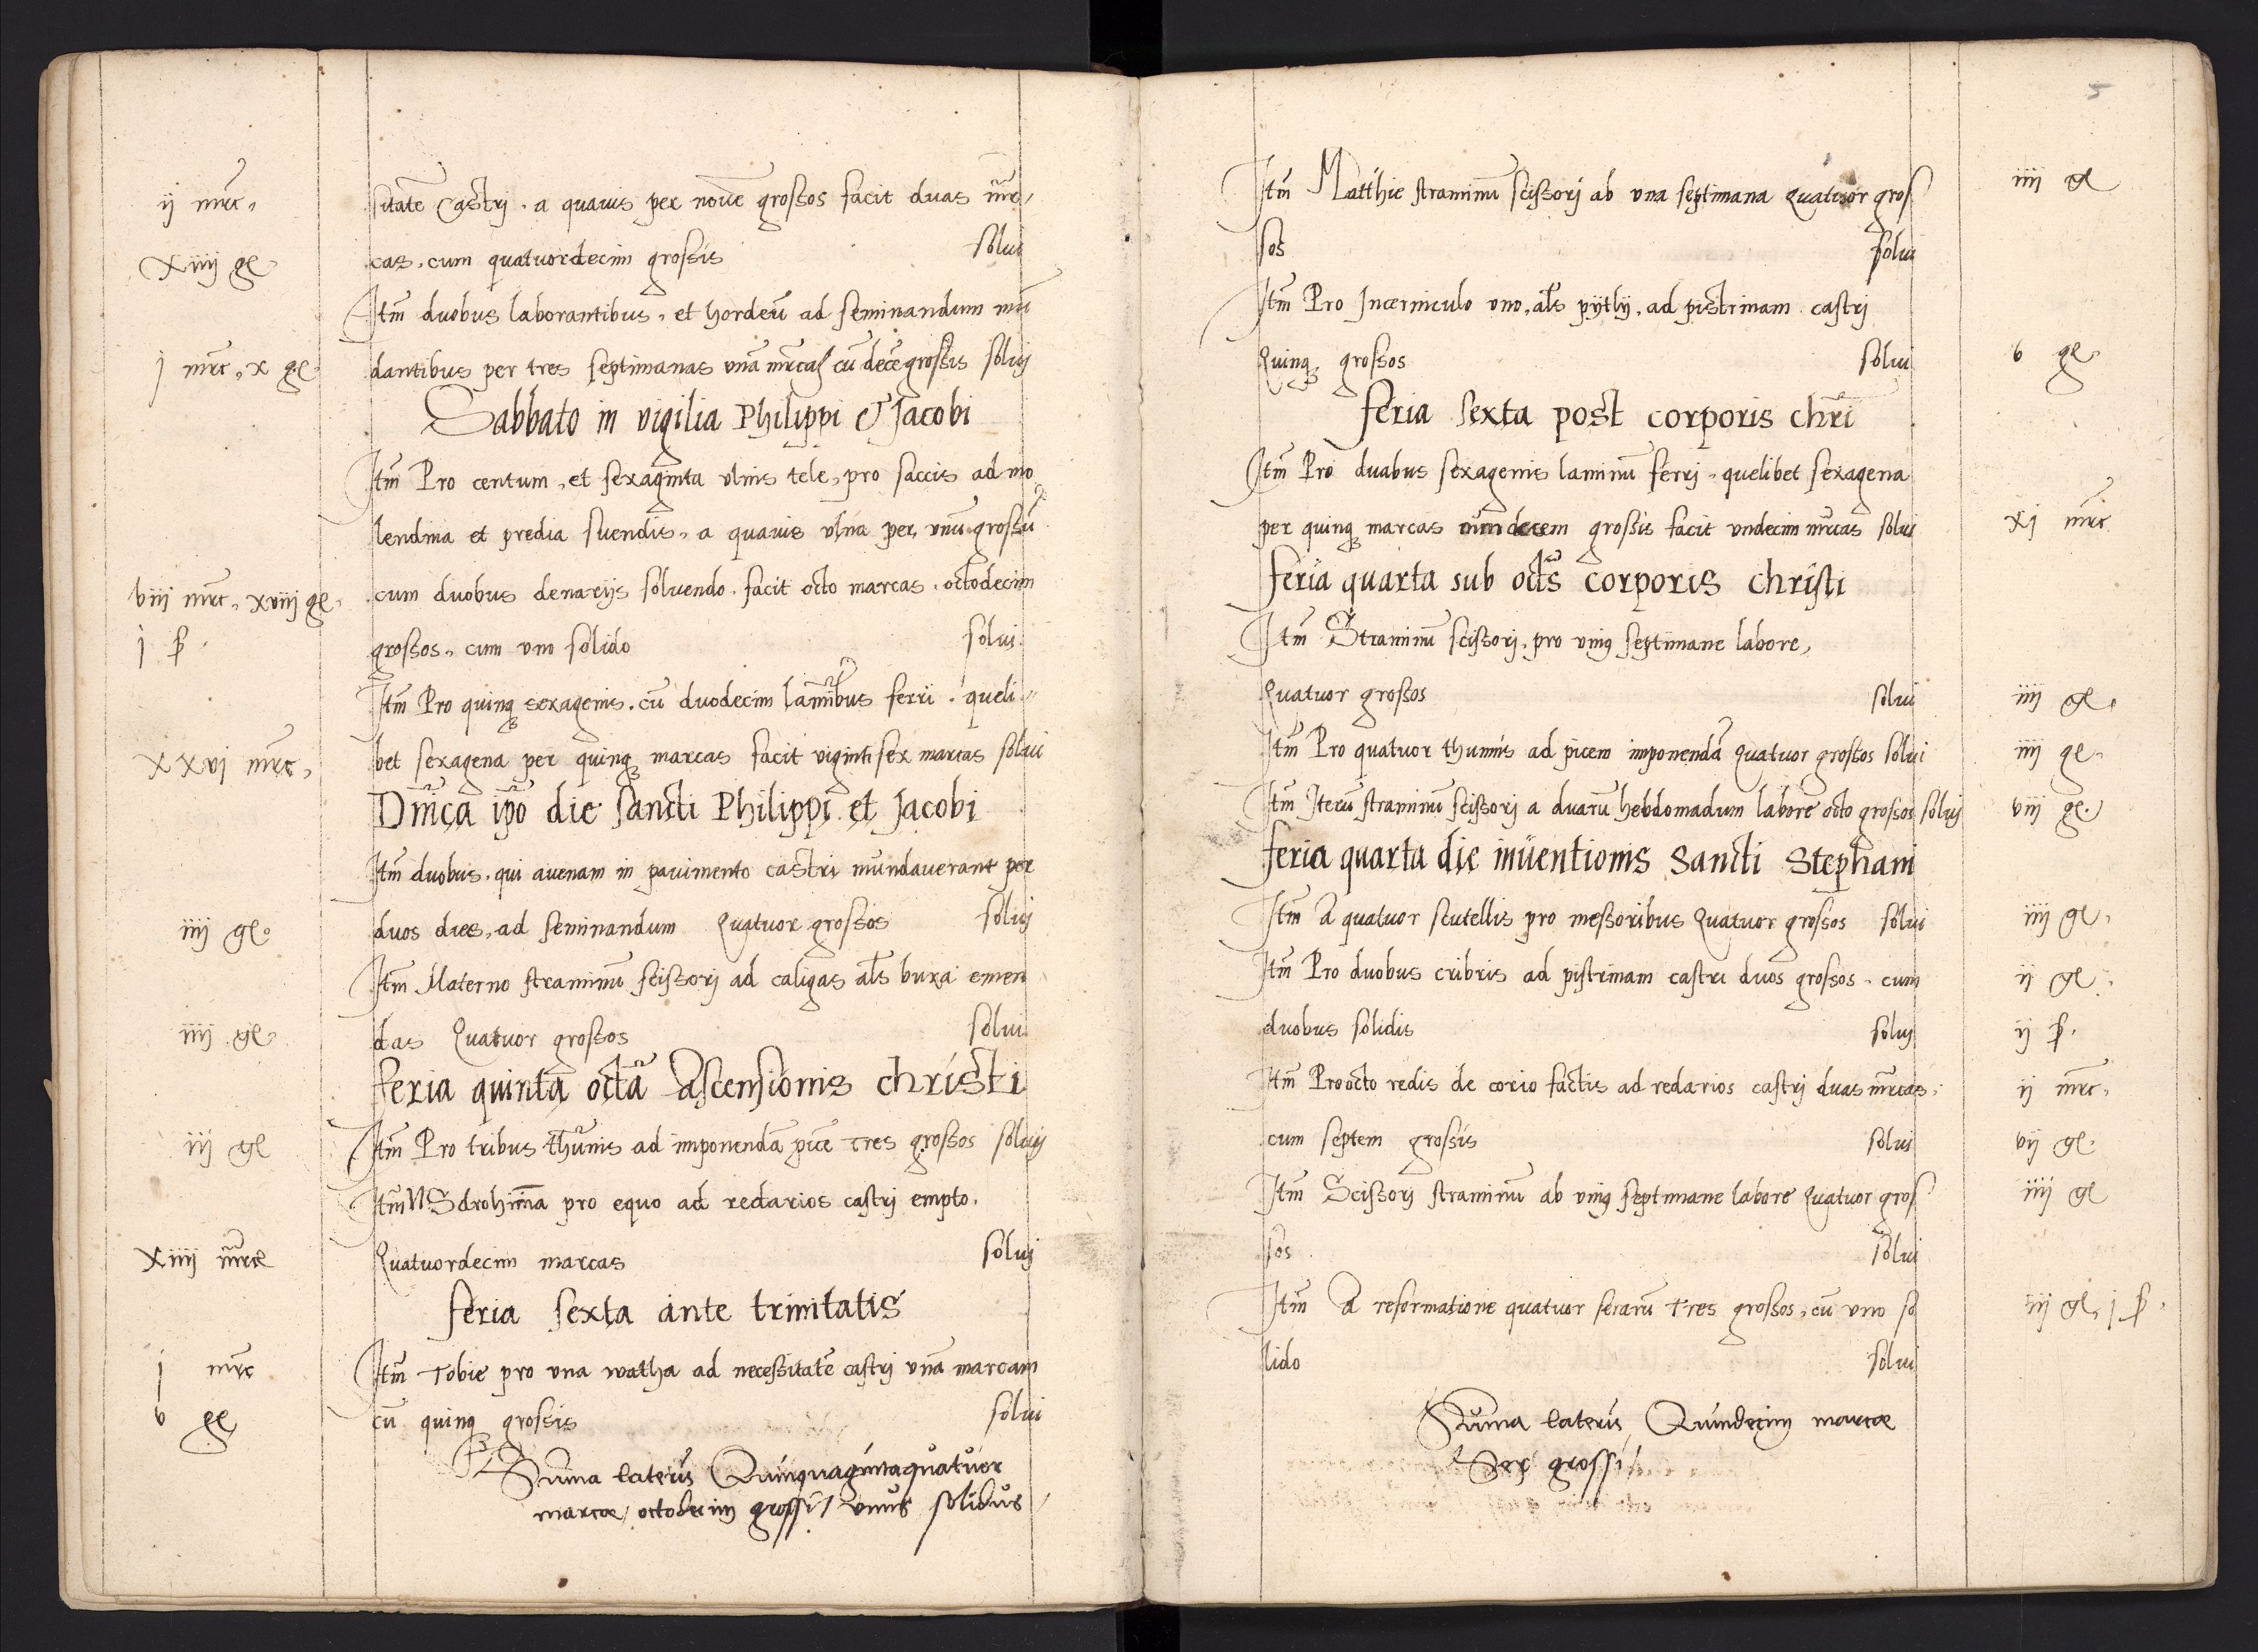 ij mrc.
sitatē Castrj. a quauis per nouē grossos facit duas mr̄
Xiiij gℓ
cas. cum quatuordecim grossis solui
Itm̄ duobus laborantibus, et hordeū ad seminandum mū
j mrc. x gℓ
dantibus per tres septimanas vnā mrcaſ cū decē grossis soluj
Sabbato in vigilia Philippi & Jacobi
Itm̄ Pro centum, et sexaginta vlnis tele, pro saccis ad mo
lendina et predia suendis, a quauis vlna per vnū grossū
viij mrc. xviij gℓ.
cum duobus denarijs soluendo. facit octo marcas. octodecim
j ß.
grossos, cum vno solido solui.
Itm̄ Pro quinq; sexagenis. cū duodecim lamībus ferri. queli
XXvj mrc.
bet sexagena per quinq; marcas facit viginti sex marcas solui
Dm̄ca ip̄o die sancti Philippi et Jacobi
Itm̄ duobus. qui auenam in pauimento castri mundauerant per
iiij gℓ.
duos dies, ad seminandum Quatuor grossos soluj
Itm̄ Materno straminū scissorj ad caligas als̄ buxa emen
iiij gℓ
das Quatuor grossos solui
feria quinta octā Ascensionis christi
iij gℓ
Itm̄ Pro tribus thunis ad imponendā picē Tres grossos soluj
Itm̄ pro equo ad redarios castrj empto.
Xiiij mrce
Quatuordecim marcas soluj
feria sexta ante trinitatis
j mrc
Itm̄ Tobie pro vna watha ad necessitatē castrj vnā marcam
v gℓ
cū quinq; grossis solui
Suma lateris Quinquagintaquatuor
marcae/ octodecim grossi/ vnus solidus
5
Itm̄ Matthie straminū scissorj ab vna septimana Quatuor gros iiij gℓ
sos solui
Itm̄ Pro Incerniculo vno, als̄ pytly, ad pistrinam castrj
Quinq; grossos solui v gℓ
feria sexta post corporis chr̄i
Itm̄ Pro duabus sexagenis laminū ferrj. quelibet sexagena
per quinq; marcas cum decem grossis facit vndecim mrcas solui xj mrc
feria quarta sub octs̄ corporis christi
Itm̄ Straminū scissorj, pro vnig septimane labore,
Quatuor grossos solui iiij gℓ.
Itm̄ Pro quatuor thunnis ad picem imponendā Quatuor grossos solui iiij gℓ.
Itm̄ Iterū straminū scissorj a duarū hebdomadum labore octo grossos soluj viij gℓ.
feria quarta die inuentionis Sancti Stephani
Itm̄ A quatuor scutellis pro messoribus Quatuor grossos solui iiij gℓ.
Itm̄ Pro duobus cribris ad pistrinam castri duos grossos. cum ij gℓ
duobus solidis soluj ij ß.
Itm̄ Pro octo redis de corio factis ad redarios castrj duas mrcas. ij mrc.
cum septem grossis solui vij gℓ.
Itm̄ Scissorj straminū ab vnig septimane labore Quatuor gros iiij gℓ
sos solui
Itm̄ A reformatione quatuor serarū Tres grossos, cū vno so iij gℓ, j ß.
lido solui
Suma lateris Quindecim marcae
Sex grossi